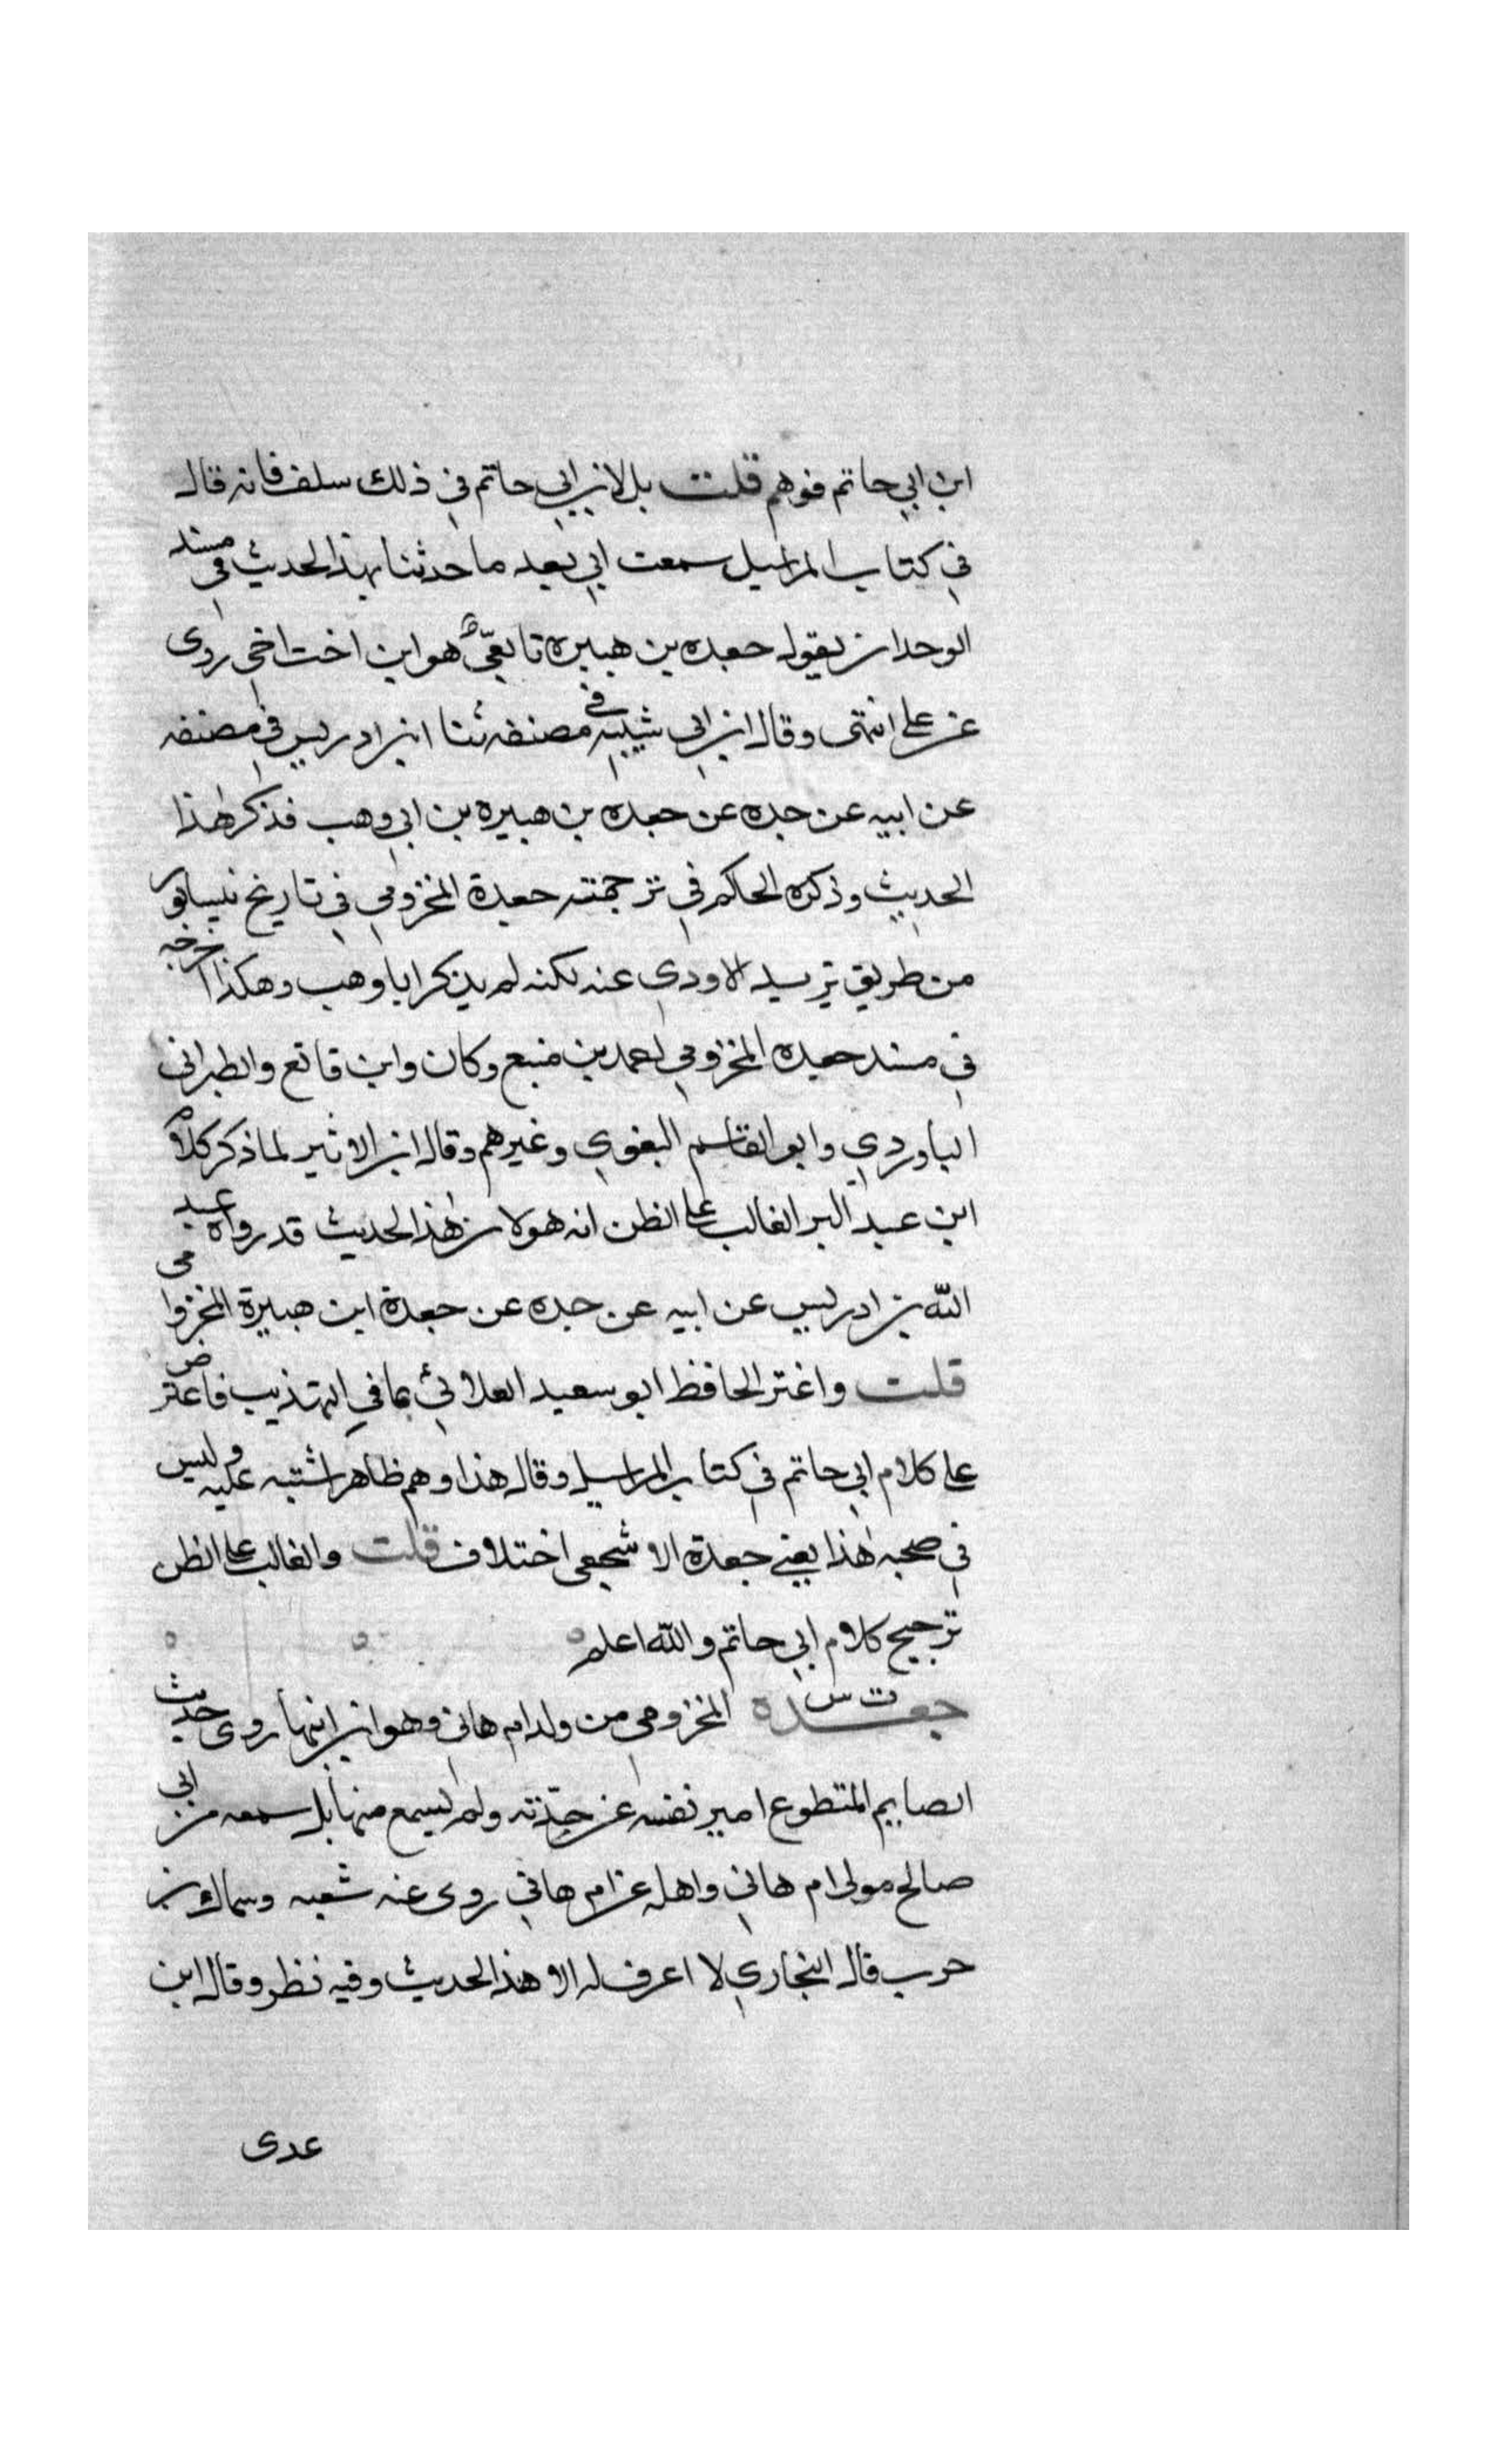 ابن ابي حاتم فوهم قلت بل لابن ابي حاتم في ذلك سلف فانه قال
في كتاب المراسيل سمعت ابي بعد ما حدثنا بهذا الحديث في مسند
الوحدان يقول جعده بن هبيره تابعيّ هو ابن اخت اخى روى
عن على انتهى وقال ابن ابي شيبه في مصنفه ثنا ابن ادريس في مصنفه
عن ابيه عن جده عن جعده بن هبيره بن ابي وهب فذكر هذا
الحديث وذكره الحاكم في ترجمته جعدة المخزومي في تاريخ نيسابور
من طريق يزيد الاودي عنه لكنه لم يذكر ابا وهب وهكذا اخرجه
في مسند جعيده المخزومي احمد بن منيع وكان وابن قانع والطبرانى
الباوردي وابو القاسم البغوي وغيرهم وقال ابن الاثير لما ذكر كلام
ابن عبد البر الغالب على الظن انه هو لان هذا الحديث قد رواه عبد
الله بن ادريس عن ابيه عن جده عن جعدة ابن هبيرة المخزوامى
قلت واغتر الحافظ ابو سعيد العلائي بما في التهذيب فاعترض
على كلام ابي حاتم في كتاب المراسيل وقال هذا وهم ظاهر اشتبه عليه وليس
في صحبه هذا يعني جعدة الاشجعى اختلاف قلت والغالب على الظن
ترجيح كلام ابي حاتم والله اعلم
جعده ت س المخزومى من ولد ام هانى وهو ابن ابنها روى حديث
الصايم المتطوع امير نفسه عن جدّته ولم يسمع منها بل سمعه من ابي
صالح مولى ام هاني واهله عن ام هاني روى عنه شعبه وسماك بن
حرب قال البخاري لا اعرف له الا هذا الحديث وفيه نظر وقال ابن
عدى